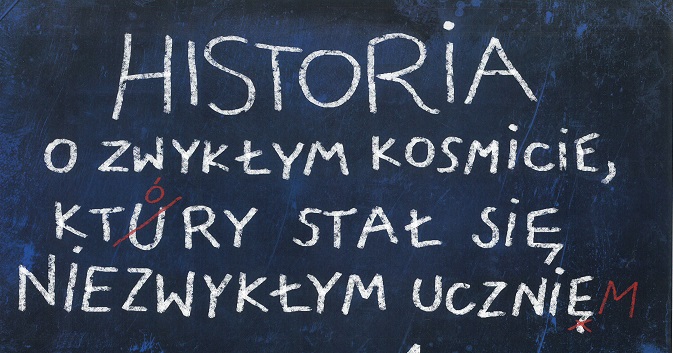 HISTORIA
O ZWYKŁYM KOSMICIE,
Ó
KTURY STAŁ SIĘ
NIEZWYKŁYM UCZNIĘM